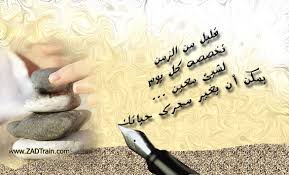 قليل من الزمن
تخصصه كل يوم
لشيئ معين ...
يمكن أن يغير مجرى حياتك
www.ZADTrain.com